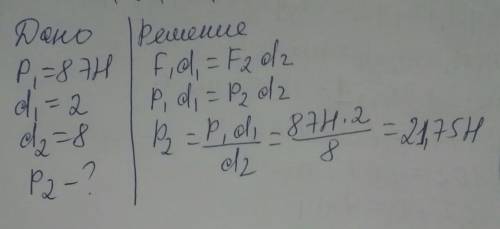 Дано
P₁=87H
d₁=2
d₂=8
P₂-?
Решение
F₁d₁=F₂d₂
P₁d₁=P₂d₂
P₂=P₁d₁/d₂=87H·2/8=21,75H